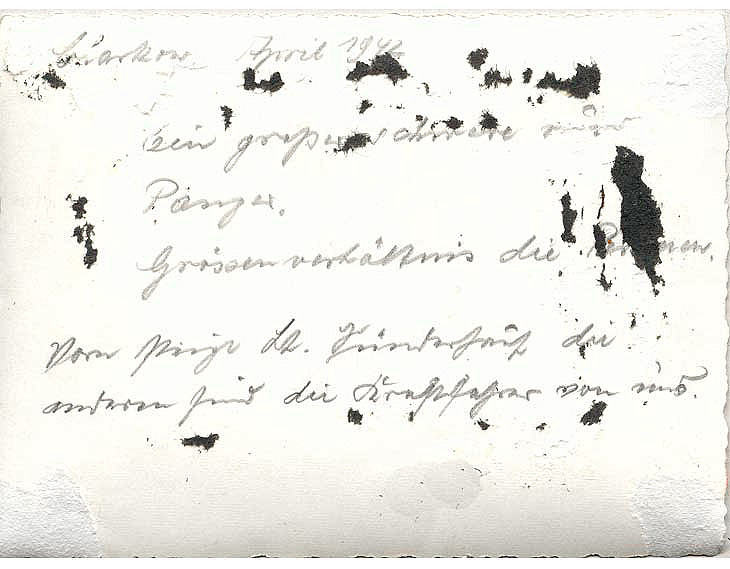 Charkow April 1942
Ein großer schwere russ
Panzer.
Grössenverhältnis die Personen.
Vorn steigt Lt. die
anderen sind die Kraftfahrer von uns.